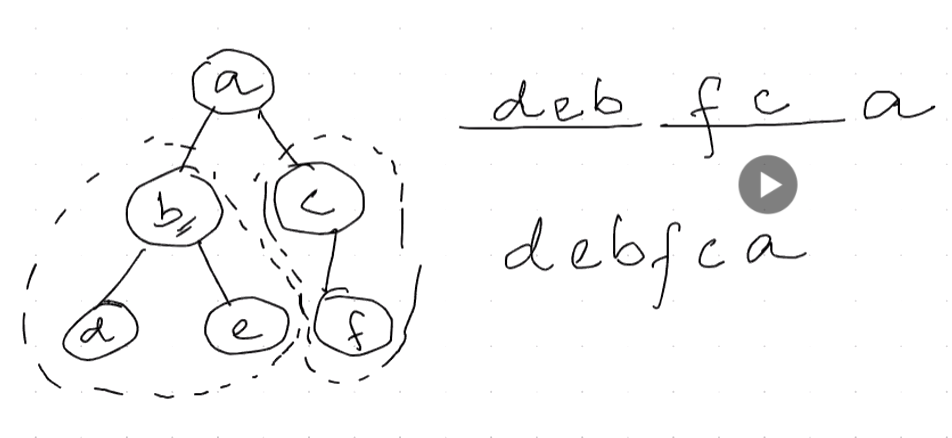 a
b c
d e f
deb fc a
debfca